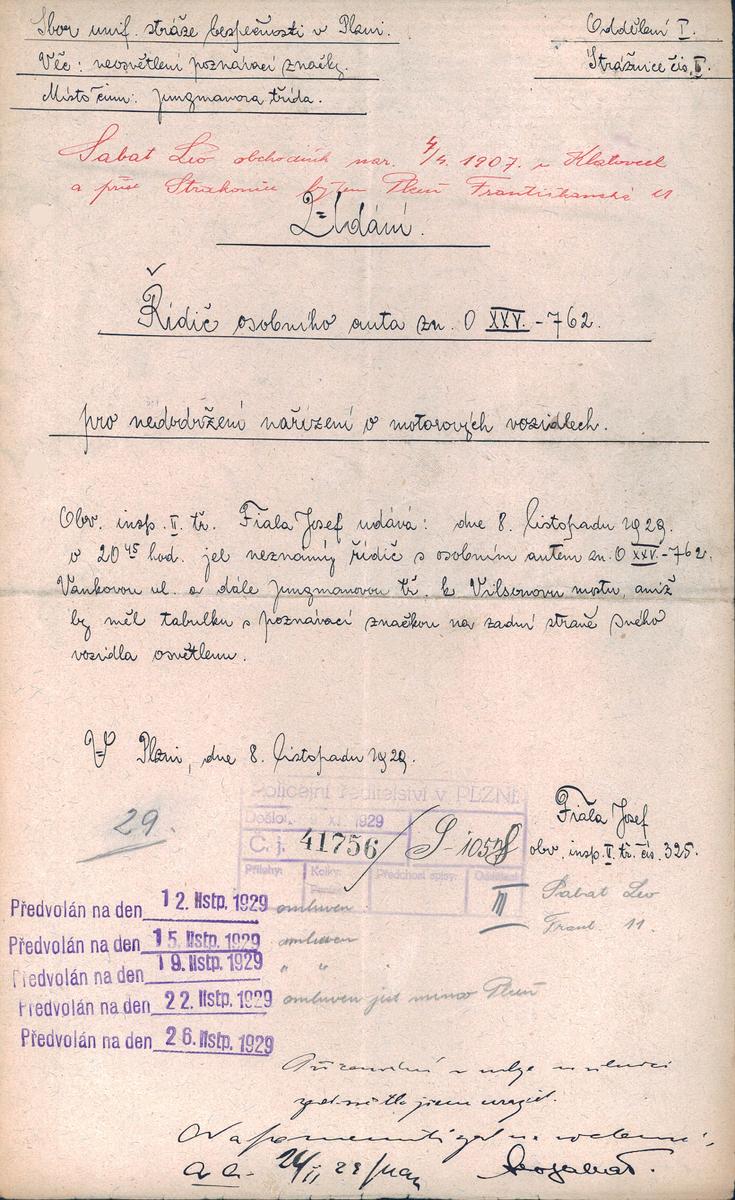 Sbor unif. stráže bezpečnosti v Plzni.
Oddělení I.
Věc: neosvětlení poznávací značky.
Strážnice čís. I.
Místo činu: Jungmanova třída.
Sabat Leo obchodník nar. 4/4. 1907. v
a přísl. Strakonice bytem Plzeň Františkánská 11
Udání.
Řidič osobního auta zn. O XXV. - 762.
pro nedodržení nařízení o motorových vozidlech.
Obv. insp. II. tř. Fiala Josef udává: dne 8. listopadu 1929.
v 20 45 hod. jel neznámý řidič s osobním autem zn. O XXV. - 762.
Vankovou ul. a dále Jungmanovou tř. k Vilsonovu mostu, aniž
by měl tabulku s poznávací značkou na zadní straně svého
vozidla osvětlenu.
V Plzni, dne 8. listopadu 1929.
Fiala Josef
obv. insp. II. tř. čís. 325.
29.
Policejní ředitelství v PLZNI.
Došlo: 9 XI. 1929
Č. j. 41756 / S-1057/8
Přílohy: Kolky: Předchozí spisy: Oddělení
III
Sabat Leo
Frant. 11.
Předvolán na den 12. listp. 1929 omluven
Předvolán na den 15. listp. 1929 omluven
Předvolán na den 19. listp. 1929 " "
Předvolán na den 22. listp. 1929 omluven jest mimo Plzeň
Předvolán na den 26. listp. 1929